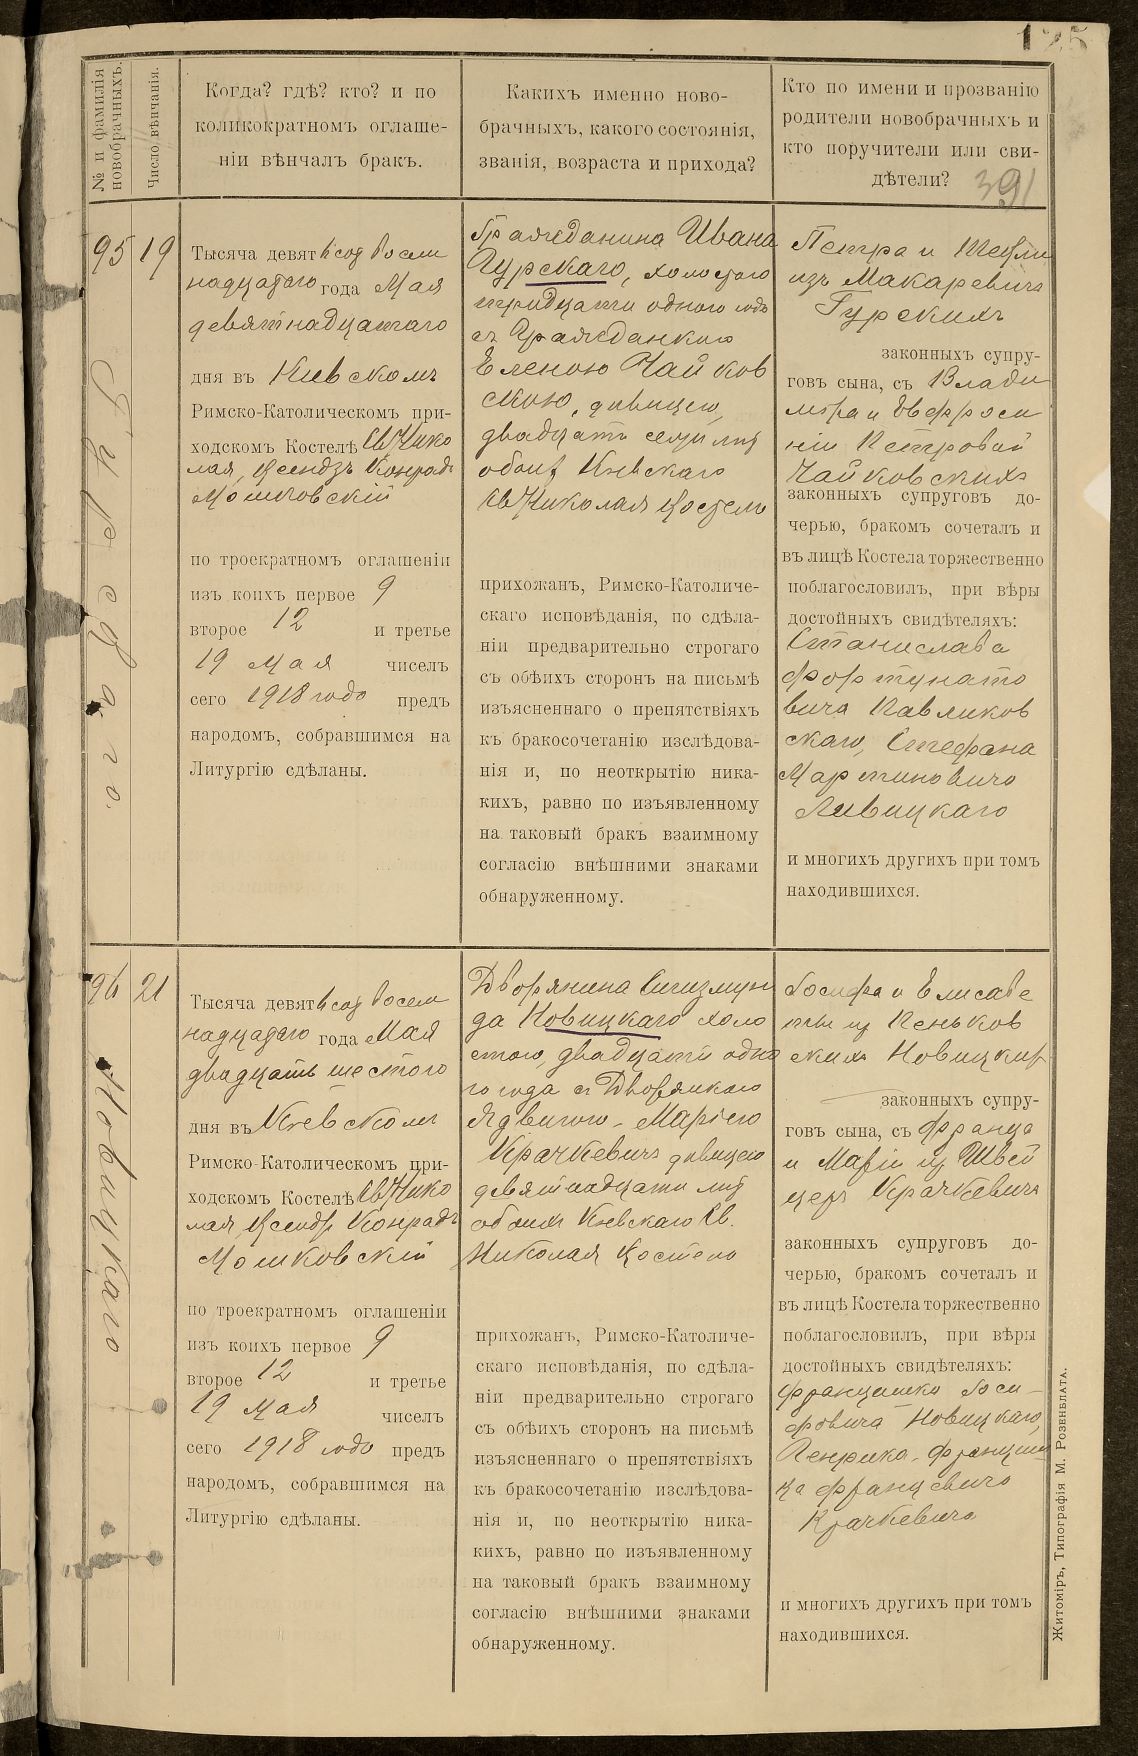 № и фамилія новобрачныхъ.
Число вѣнчанія.
Когда? гдѣ? кто? и по
коликократномъ оглаше-
ніи вѣнчалъ бракъ.
Какихъ именно ново-
брачныхъ, какого состоянія,
званія, возраста и прихода?
Кто по имени и прозванію
родители новобрачныхъ и
кто поручители или сви-
дѣтели?
391
95
Гурскаго.
19
Тысяча девятьсот восем
надцатаго года Мая
девятнадцатаго
дня въ Киевскомъ
Римско-Католическомъ при-
ходскомъ Костелѣ Св Нико
лая, Ксендзъ Конрадъ
Мошковскій
по троекратномъ оглашеніи
изъ коихъ первое 9
второе 12 и третье
19 мая чиселъ
сего 1918 года предъ
народомъ, собравшимся на
Литургію сдѣланы.
Гражданина Ивана
Гурскаго, холостаго
тридцати одного года
съ Гражданкою
Еленою Чайков
скою, дѣвицею,
двадцати семи лѣт
обоих Киевскаго
Св Николая Костела
прихожанъ, Римско-Католиче-
скаго исповѣданія, по сдѣла-
ніи предварительно строгаго
съ обѣихъ сторонъ на письмѣ
изъясненнаго о препятствіяхъ
къ бракосочетанію изслѣдова-
нія и, по неоткрытію ника-
кихъ, равно по изъявленному
на таковый бракъ взаимному
согласію внѣшними знаками
обнаруженному.
Петра и Текли
изъ Макаревичъ
Гурскихъ
законныхъ супру-
говъ сына, съ Влади
міра и Евфроси
ніи Петровой
Чайковскихъ
законныхъ супруговъ до-
черью, бракомъ сочеталъ и
въ лицѣ Костела торжественно
поблагословилъ, при вѣры
достойныхъ свидѣтеляхъ:
Станислава
Фортунато
вича Павликов
скаго, Стефана
Мартиновича
Ливицкаго
и многихъ другихъ при томъ
находившихся.
96
Новицкаго
21
Тысяча девятьсот восем
надцатаго года Мая
двадцать шестого
дня въ Киевскомъ
Римско-Католическомъ при-
ходскомъ Костелѣ Св Нико
лая, Ксендз Конрадъ
Мошковскій
по троекратномъ оглашеніи
изъ коихъ первое 9
второе 12 и третье
19 мая чиселъ
сего 1918 года предъ
народомъ, собравшимся на
Литургію сдѣланы.
Дворянина Сигизмун
да Новицкаго холо
стого, двадцати одно
го года съ Дворянкою
Ядвигою-Маріею
Крачкевичъ дѣвицею
девятнадцати лѣт
обоихъ Киевскаго Св.
Николая Костела
прихожанъ, Римско-Католиче-
скаго исповѣданія, по сдѣла-
ніи предварительно строгаго
съ обѣихъ сторонъ на письмѣ
изъясненнаго о препятствіяхъ
къ бракосочетанію изслѣдова-
нія и, по неоткрытію ника-
кихъ, равно по изъявленному
на таковый бракъ взаимному
согласію внѣшними знаками
обнаруженному.
Іосифа и Елисаве
ты из Пеньков
скихъ Новицких
законныхъ супру-
говъ сына, съ Франца
и Маріи из Швей
церъ Крачкевичъ
законныхъ супруговъ до-
черью, бракомъ сочеталъ и
въ лицѣ Костела торжественно
поблагословилъ, при вѣры
достойныхъ свидѣтеляхъ:
Францишка Іоси-
фовича Новицкаго,
Генрика-Франциш
ка Францевича
Крачкевича
и многихъ другихъ при томъ
находившихся.
Житоміръ, Типографія М. Розенблата.